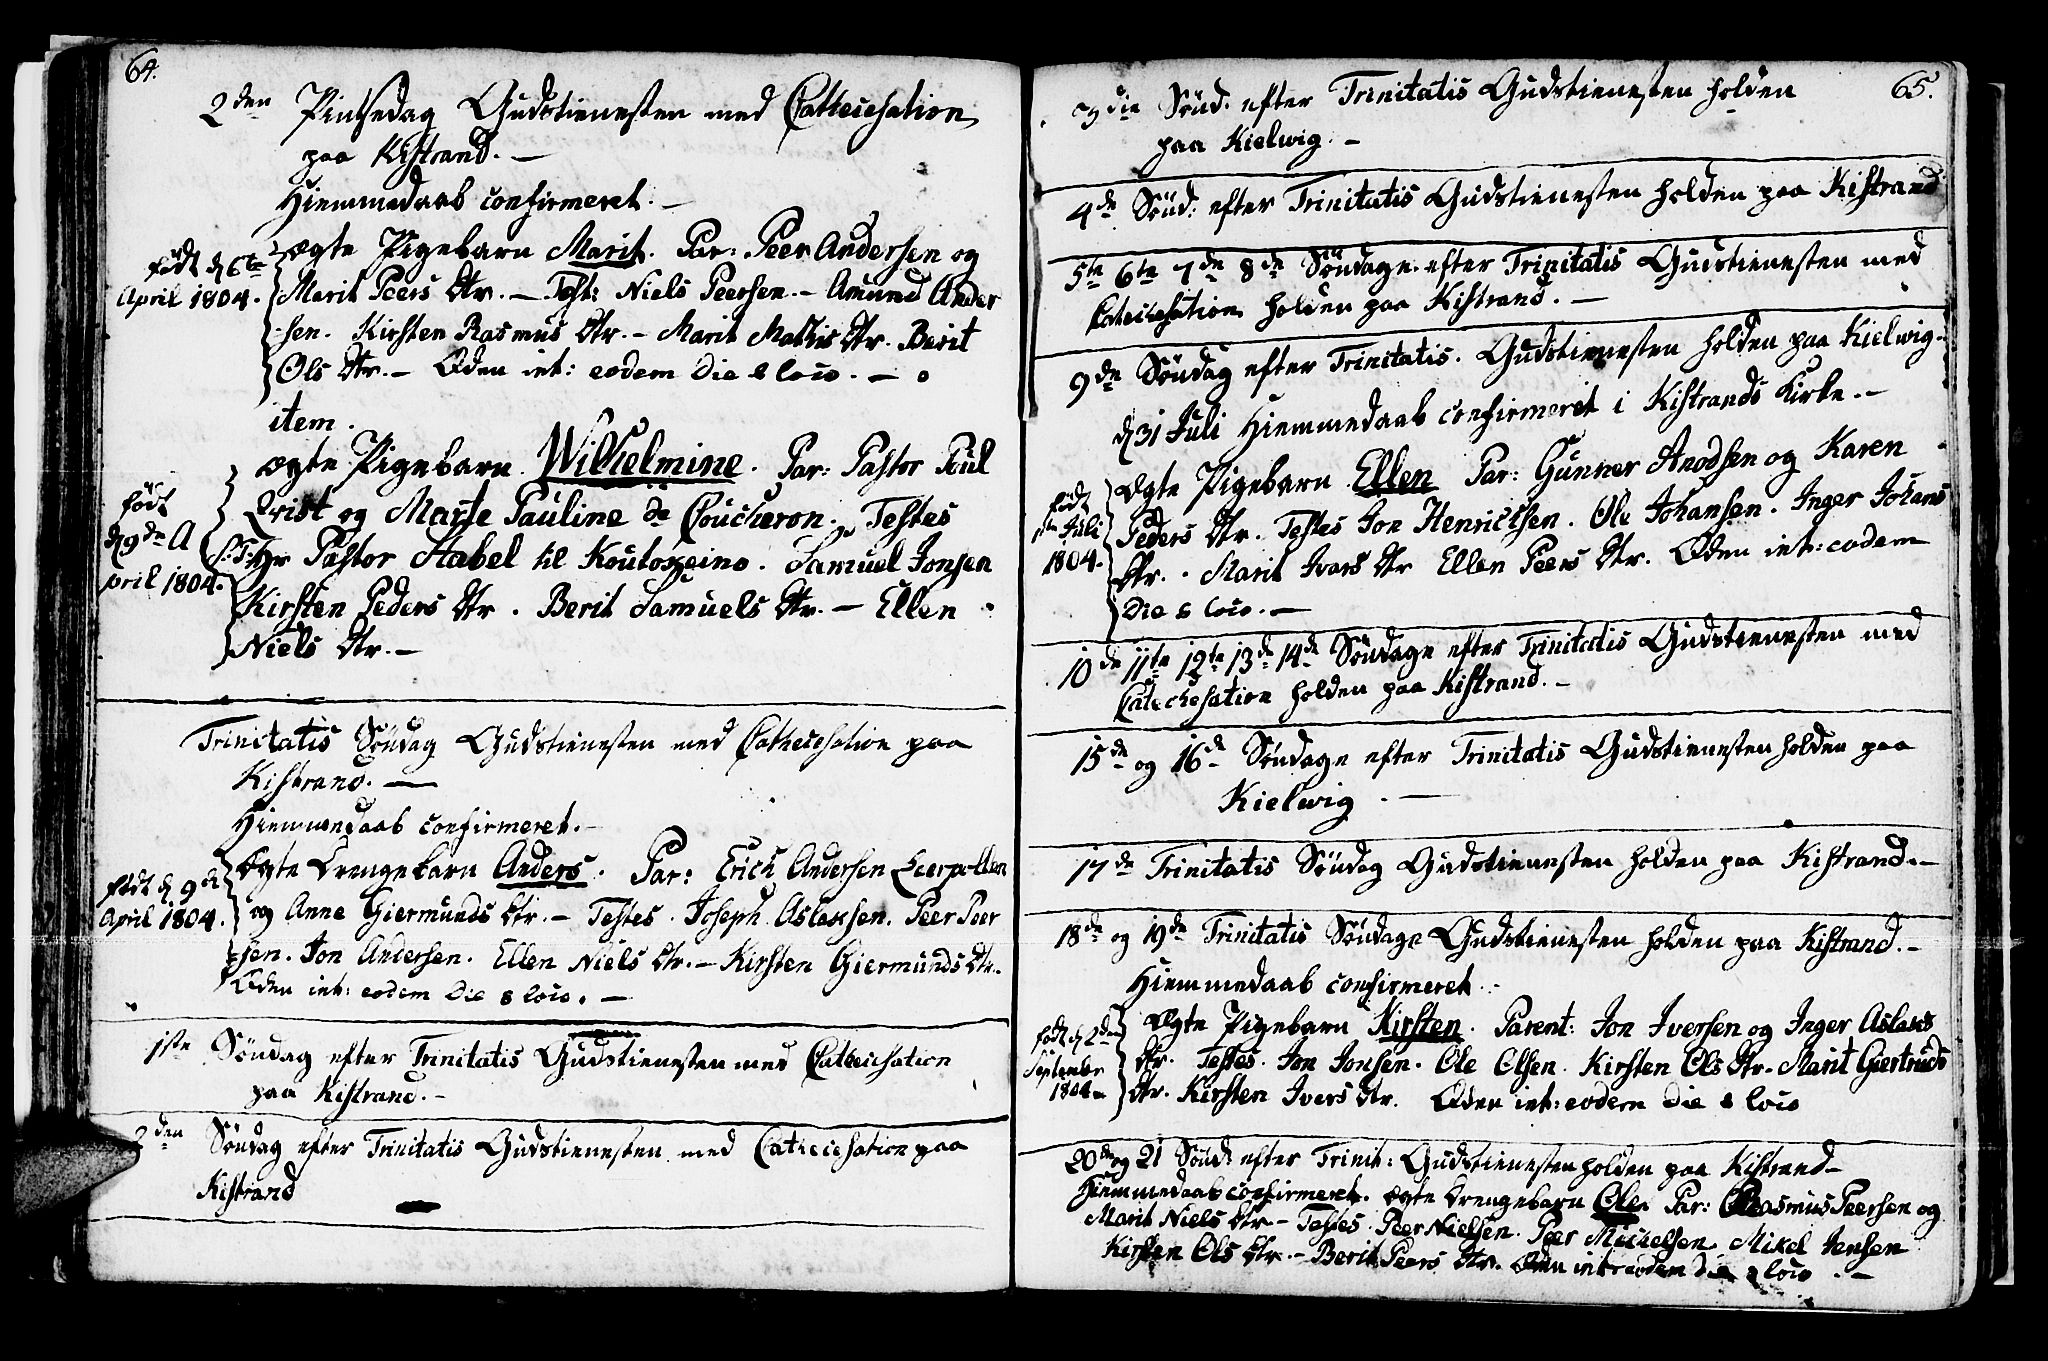 64.
2den Pintsedag Gudstienesten med Cathecisation
paa Kistrand. —
Hiemmedaab confirmeret. —
født d 6te
April 1804.
ægte Pigebarn Marit. Par: Peer Andersen og
Marit Peers Dtr. — Test: Niels Peersen. — Amund Ander
sen. Kirsten Rasmus Dtr. — Marit Mathis Dtr. Berit
Ols Dtr. — Øden int: eodem Die & loco. —
item.
født
d 9de A
pril 1804.
ægte Pigebarn Wilhelmine. Par: Pastor Poul
Qvist og Marte Pauline de Coucheron. Testes
S: T: Hr Pastor Stabel til Koutokeino. Samuel Jonsen
Kirsten Peders Dtr. Berit Samuels Dtr. — Ellen
Niels Dtr. —
Trinitatis Søndag Gudstienesten med Cathecisation paa
Kistrand. —
Hiemmedaab confirmeret. —
født d 9de
April 1804.
Ægte Drengebarn Anders. Par: Erich Andersen Leerpollen
og Anne Giermunds Dtr. — Testes. Joseph Aslaksen. Peer Peer
sen. Jon Andersen. Ellen Niels Dtr. — Kirsten Giermunds Dtr.
Øden int: eodem Die & loco. —
1ste Søndag efter Trinitatis Gudstienesten med Cathecisation
paa Kistrand. —
2den Søndag efter Trinitatis Gudstienesten med Cathecisation paa
Kistrand
65.
3die Sønd. efter Trinitatis Gudstienesten holden
paa Kielwig. —
4de Sønd: efter Trinitatis Gudstienesten holden paa Kistrand
5te 6te 7de 8de Søndage efter Trinitatis Gudstienesten med
Catechesation holden paa Kistrand. —
9de Søndag efter Trinitatis. Gudstienesten holden paa Kielwig. —
d 31 Juli Hiemmedaab confirmeret i Kistrands Kirke. —
født
Juli
1804.
Ægte Pigebarn Ellen Par: Gunner Anodsen og Karen
Peders Dtr. Testes Jon Henricksen. Ole Johansen. Inger Johans
Dtr. Marit Ivars Dtr Ellen Peers Dtr. Øden int: eodem
Die & loco. —
10de 11te 12te 13de 14de Søndage efter Trinitatis Gudstienesten med
Catechesation holden paa Kistrand. —
15de og 16de Søndage efter Trinitatis Gudstienesten holden paa
Kielwig. —
17de Trinitatis Søndag Gudstienesten holden paa Kistrand. —
18de og 19de Trinitatis Søndage Gudstienesten holden paa Kistrand. —
Hiemmedaab confirmeret. —
født d 2den
September
1804
Ægte Pigebarn Kirsten. Parent: Jon Iversen og Inger Aslaks
Dtr. Testes. Jon Jonsen. Ole Olsen. Kirsten Ols Dtr. Marit Giertruds
Dtr. Kirsten Ivers Dtr. Øden int: eodem Die & loco
20de og 21 Sønd: efter Trinit: Gudstienesten holden paa Kistrand —
Hiemmedaab confirmeret. Ægte Drengebarn Ole. Par: Rasmus Peersen og
Marit Niels Dtr. — Testes. Peer Nielsen. Peer Michelsen. Mikel Jensen
Kirsten Ols Dtr. — Berit Peers Dtr. Øden int: eodem die & loco. —